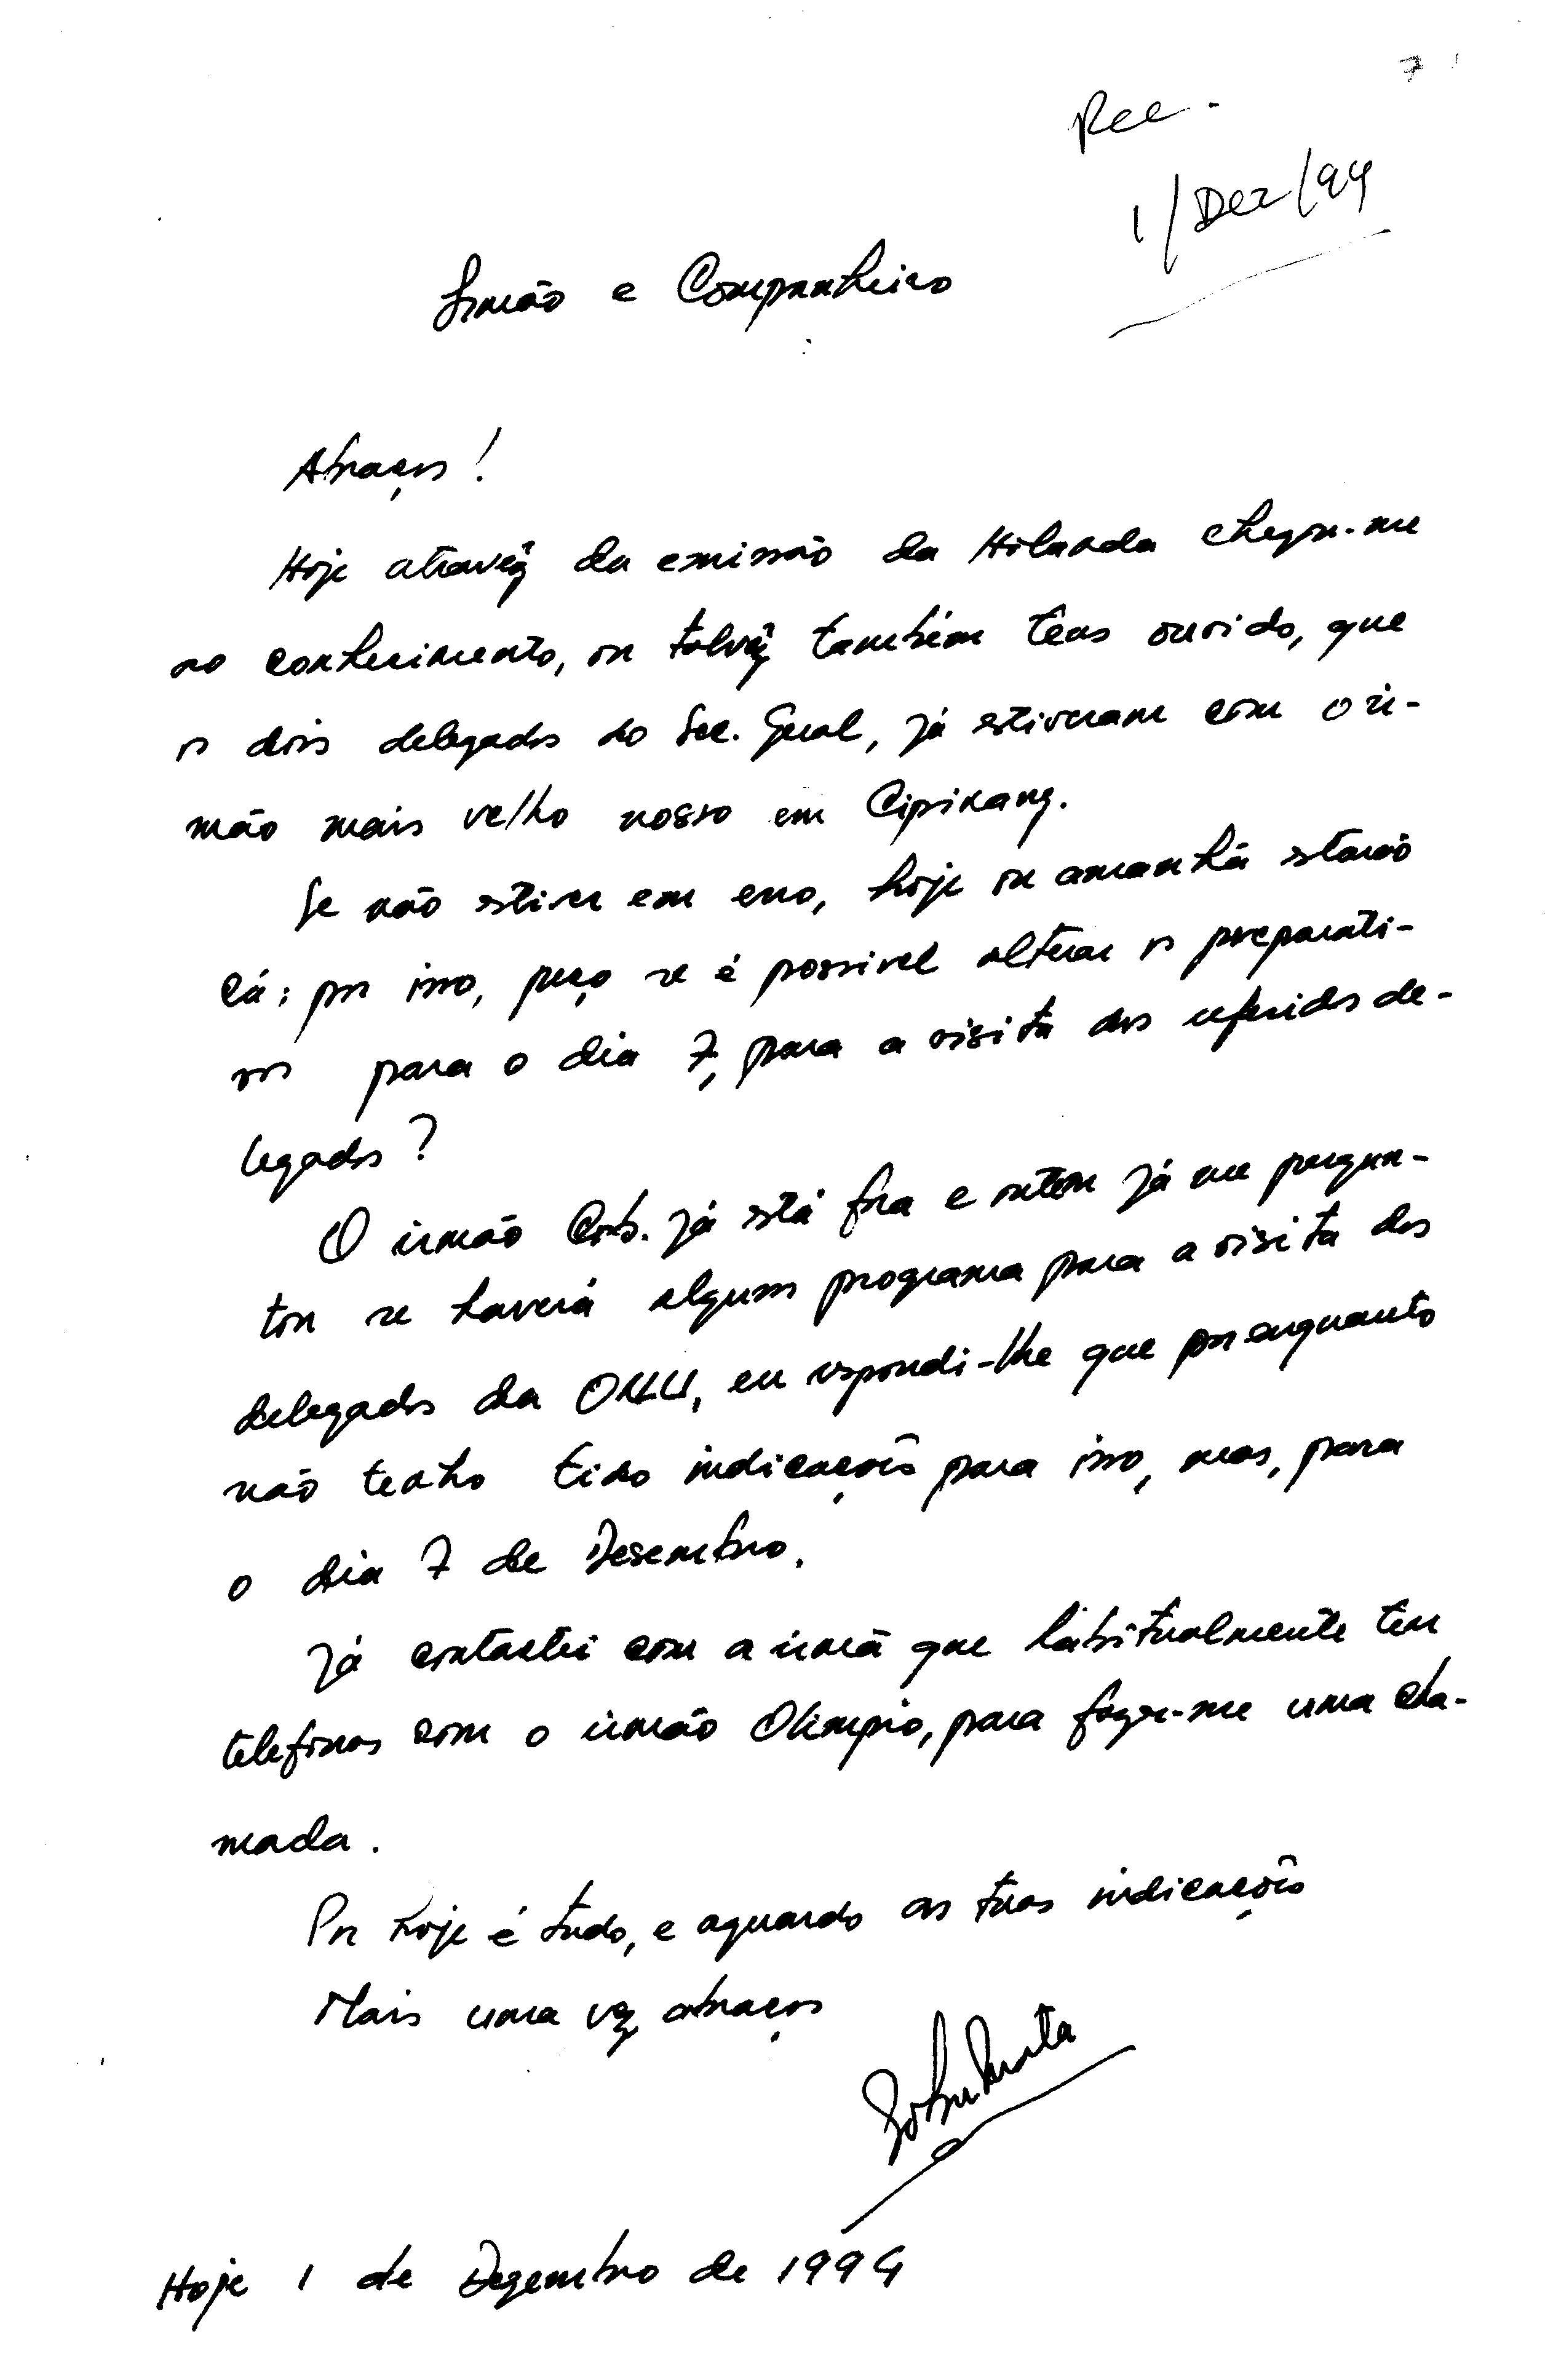 7
Rec.
1/Dez/94
Irmão e Companheiro
Abraços!
Hoje atravêz da emissão da Holanda chegou-me
ao conhecimento, ou talvêz também tens ouvido, que
os dois delegados do Sec. Geral, já estiveram com o ir-
mão mais velho nosso em Cipinang.
Se não estiver em erro, hoje ou amanhã estarão
cá; por isso, peço se é possivel alterar os preparati-
vos para o dia 7, para a visita dos referidos de-
legados?
O irmão já está fora e ontem já me pergun-
tou se haverá algum programa para a visita dos
delegados da ONU, eu respondi-lhe que por enquanto
não tenho tido indicações para isso, mas, para
o dia 7 de Desembro.
Já contactei com a irmã que habitualmente tem
telefonas com o irmão Olimpio, para fazer-me uma cha-
mada.
Por hoje é tudo, e aguardo as tuas indicações
Mais uma vez abraços
Hoje 1 de Dezembro de 1994